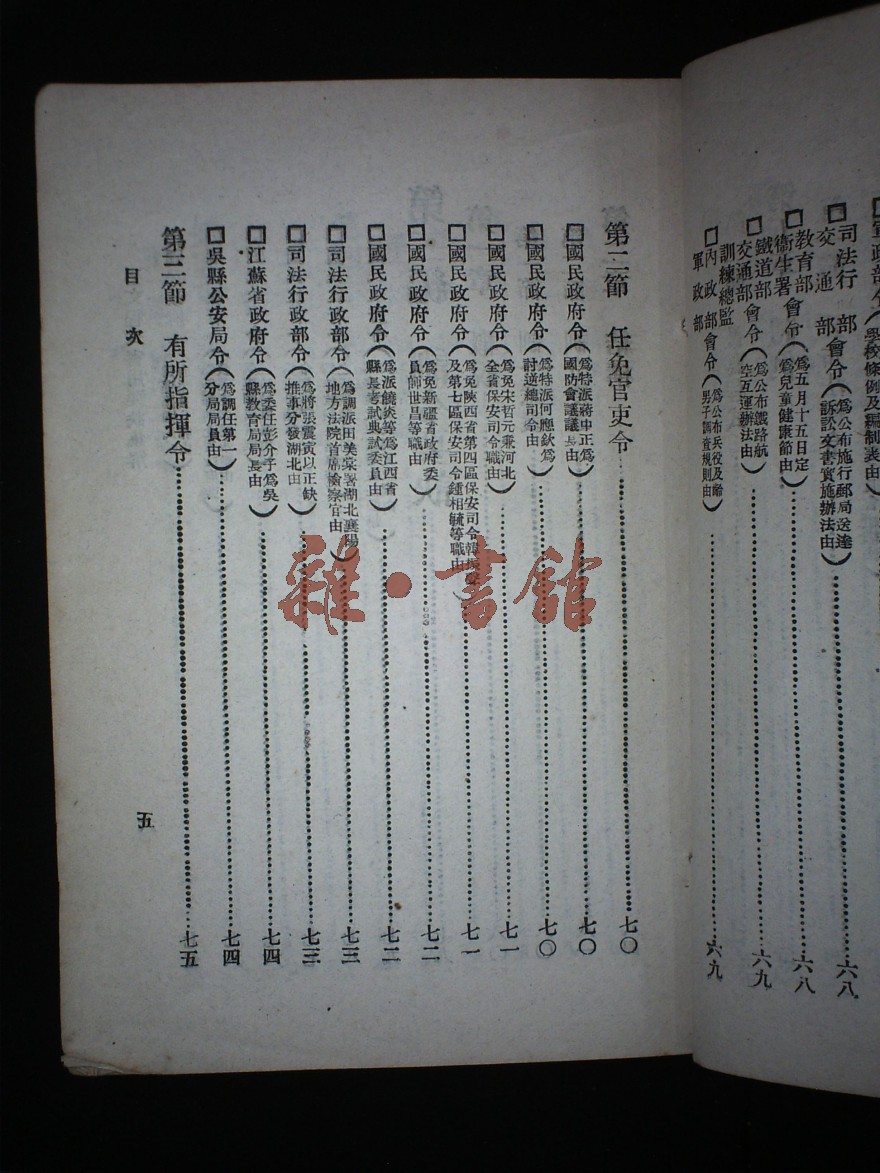 軍政部令(學校條例及編制表由)
司法行部 交通部 會令(爲公布施行郵局送達訴訟文書實施辦法由)……六八
教育部 衞生署 會令(爲五月十五日定爲兒童健康節由)……六八
鐵道部 交通部 會令(爲公布鐵路航空互運辦法由)……六九
訓練總監 內政部 軍政部 會令(爲公布兵役及齡男子調查規則由)……六九
第二節 任免官吏令……七〇
□國民政府令(爲特派蔣中正爲國防會議議長由)……七〇
□國民政府令(爲特派何應欽爲討逆總司令由)……七〇
□國民政府令(爲免宋哲元兼河北全省保安司令職由)……七一
□國民政府令(爲免陝西省第四區保安司令韓及第七區保安司令鍾相毓等職由)……七一
□國民政府令(爲免新疆省政府委員師世昌等職由)……七二
□國民政府令(爲派饒炎等爲江西省縣長考試典試委員由)……七二
□司法行政部令(爲調派田美棠署湖北襄陽地方法院首席檢察官由)……七三
□司法行政部令(爲將張震寅以正缺推事分發湖北由)……七三
□江蘇省政府令(爲委任彭介子爲吳縣教育局局長由)……七四
□吳縣公安局令(爲調任第一分局局員由)……七四
第三節 有所指揮令……七五
目次
五
雜·書館